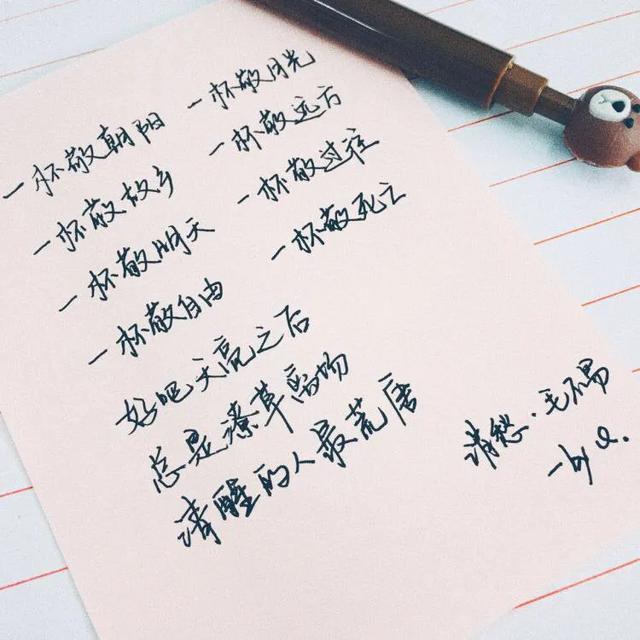 一杯敬朝阳 一杯敬月光
一杯敬故乡 一杯敬远方
一杯敬明天 一杯敬过往
一杯敬自由 一杯敬死亡
好吧天亮之后
总是潦草离场
清醒的人最荒唐
消愁·毛不易
—by Q.